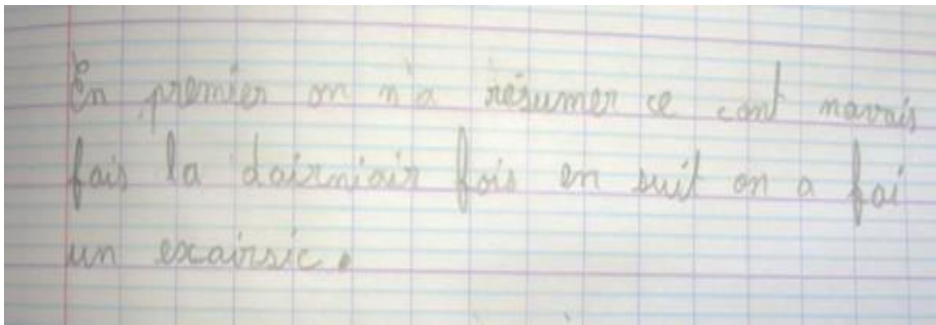 En premier on n'a résumer ce cont navais
fais la dairniair fois en suit on a fai
un excairsic.